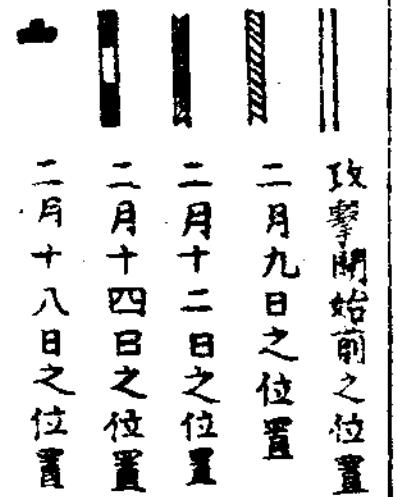 攻擊開始前之位置
二月九日之位置
二月十二日之位置
二月十四日之位置
二月十八日之位置